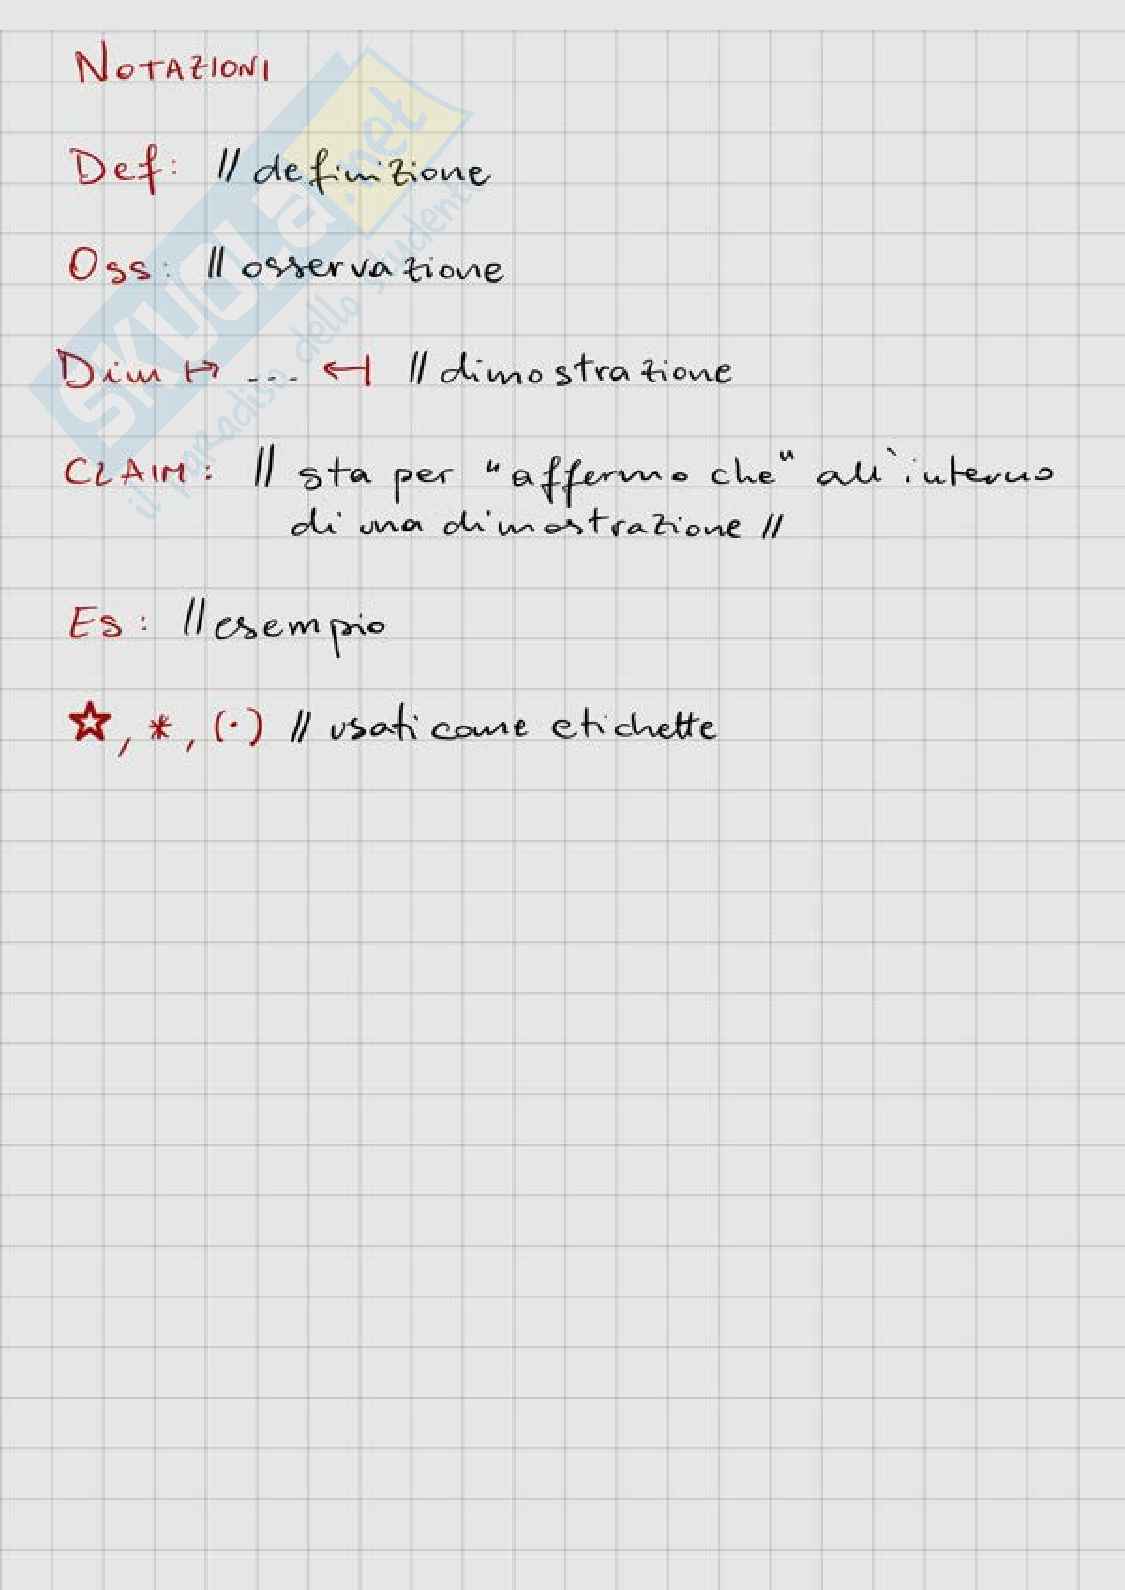 NOTAZIONI
Def: // definizione
Oss: // osservazione
Dim ↦ ... ↤ // dimostrazione
CLAIM: // sta per "affermo che" all'interno
di una dimostrazione //
Es: // esempio
☆, *, (·) // usati come etichette
SKUOLA.net
il paradiso dello studente